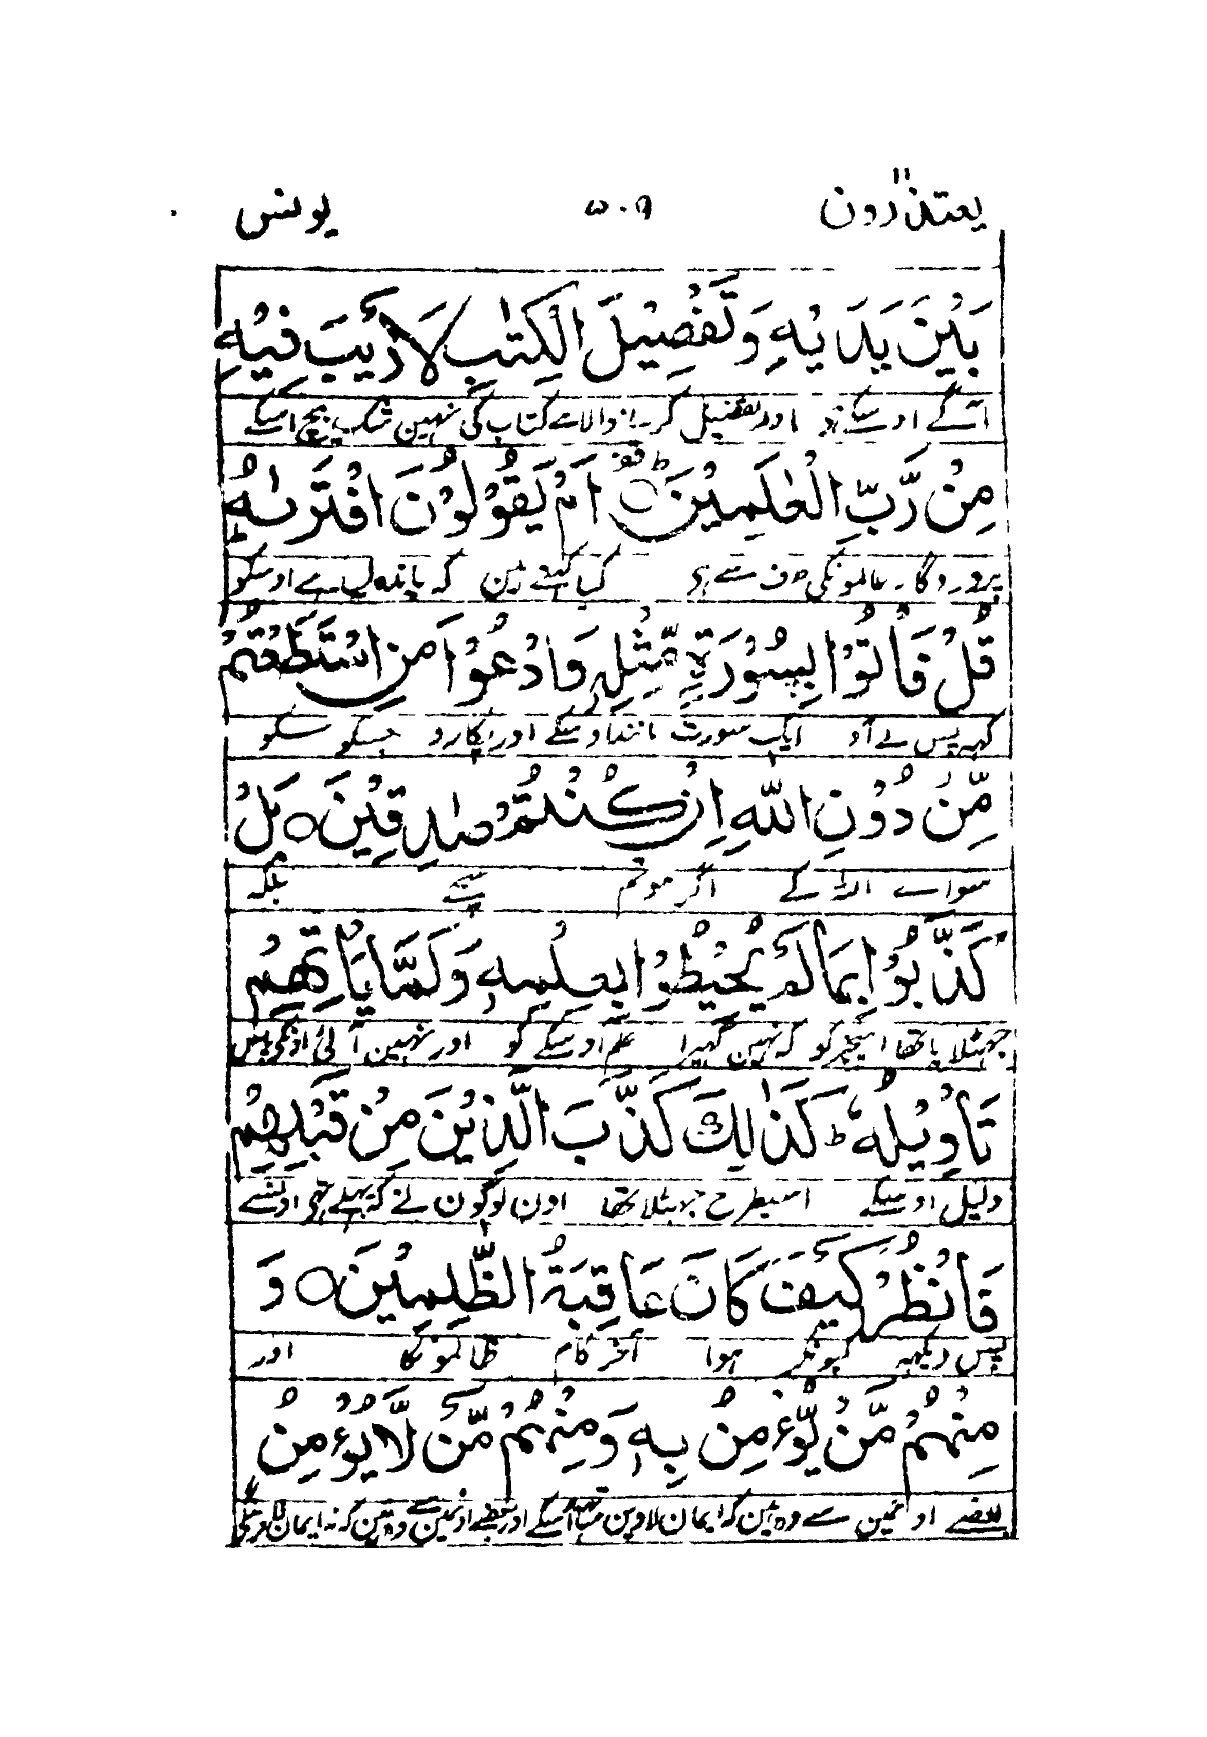 یعتذرون ۵۰۹ یونس
بَیْنَ یَدَیْهِ وَتَفْصِیْلَ الْکِتٰبِ لَا رَیْبَ فِیْهِ
آگے اوسکے ہی اور تفصیل کرنے والا ہے کتاب کی نہین شک بیچ اسکے
مِنْ رَّبِّ الْعٰلَمِیْنَ ○ اَمْ یَقُوْلُوْنَ افْتَرٰىهُ
پروردگار عالمونکی طرف سے ہی کیا کہتے ہین کہ باندہ لیا ہے اوسکو
قُلْ فَاْتُوْا بِسُوْرَةٍ مِّثْلِهٖ وَادْعُوْا مَنِ اسْتَطَعْتُمْ
کہہ پس لے آؤ ایک سورت مانند اوسکے اور پکارو جسکو سکو
مِّنْ دُوْنِ اللّٰهِ اِنْ کُنْتُمْ صٰدِقِیْنَ ○ بَلْ
سواے اللہ کے اگر ہو تم سچے بلکہ
کَذَّبُوْا بِمَا لَمْ یُحِیْطُوْا بِعِلْمِهٖ وَلَمَّا یَاْتِهِمْ
جہٹلایا تھا اسچیز کو کہ نہین گھیرا علم اوسکے کو اور نہین آئی اونکی پاس
تَاْوِیْلُهٗ ط کَذٰلِكَ کَذَّبَ الَّذِیْنَ مِنْ قَبْلِهِمْ
دلیل اوسکے اسیطرح جہٹلا تھا اون لوگون نے کہ پہلے تھی اونسے
فَانْظُرْ کَیْفَ کَانَ عَاقِبَةُ الظّٰلِمِیْنَ ○ وَ
پس دیکھہ کیونکر ہوا آخر کام ظالمونکا اور
مِنْهُمْ مَّنْ یُّؤْمِنُ بِهٖ وَمِنْهُمْ مَّنْ لَّا یُؤْمِنُ
بعضے اونمین سے وہ ہین کہ ایمان لاوین ساتھہ اسکے اور بعضے اونمین سے وہ ہین کہ نہ ایمان لاوینگی